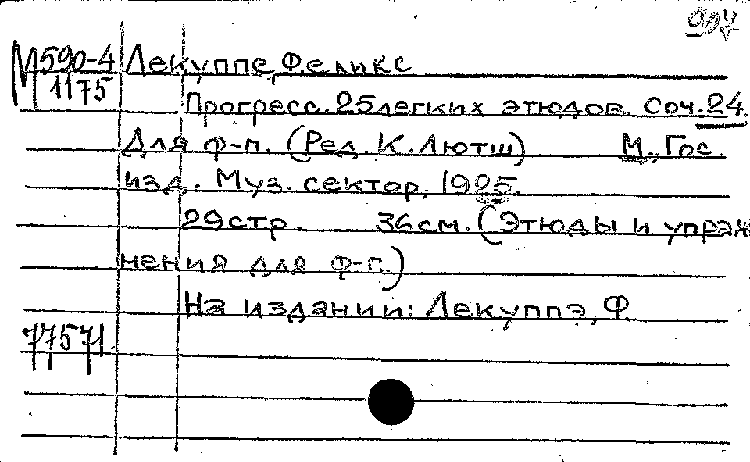 М590-4 Лекуппе, Феликс
1175
Прогресс. 25 легких этюдов. Соч. 24.
Для ф-п. (Ред. К. Лютш) М., Гос.
изд. Муз. сектор, 1925.
29 стр. 36 см. (Этюды и упраж
нения для ф-п.)
На издании: Лекуппэ, Ф.
77571